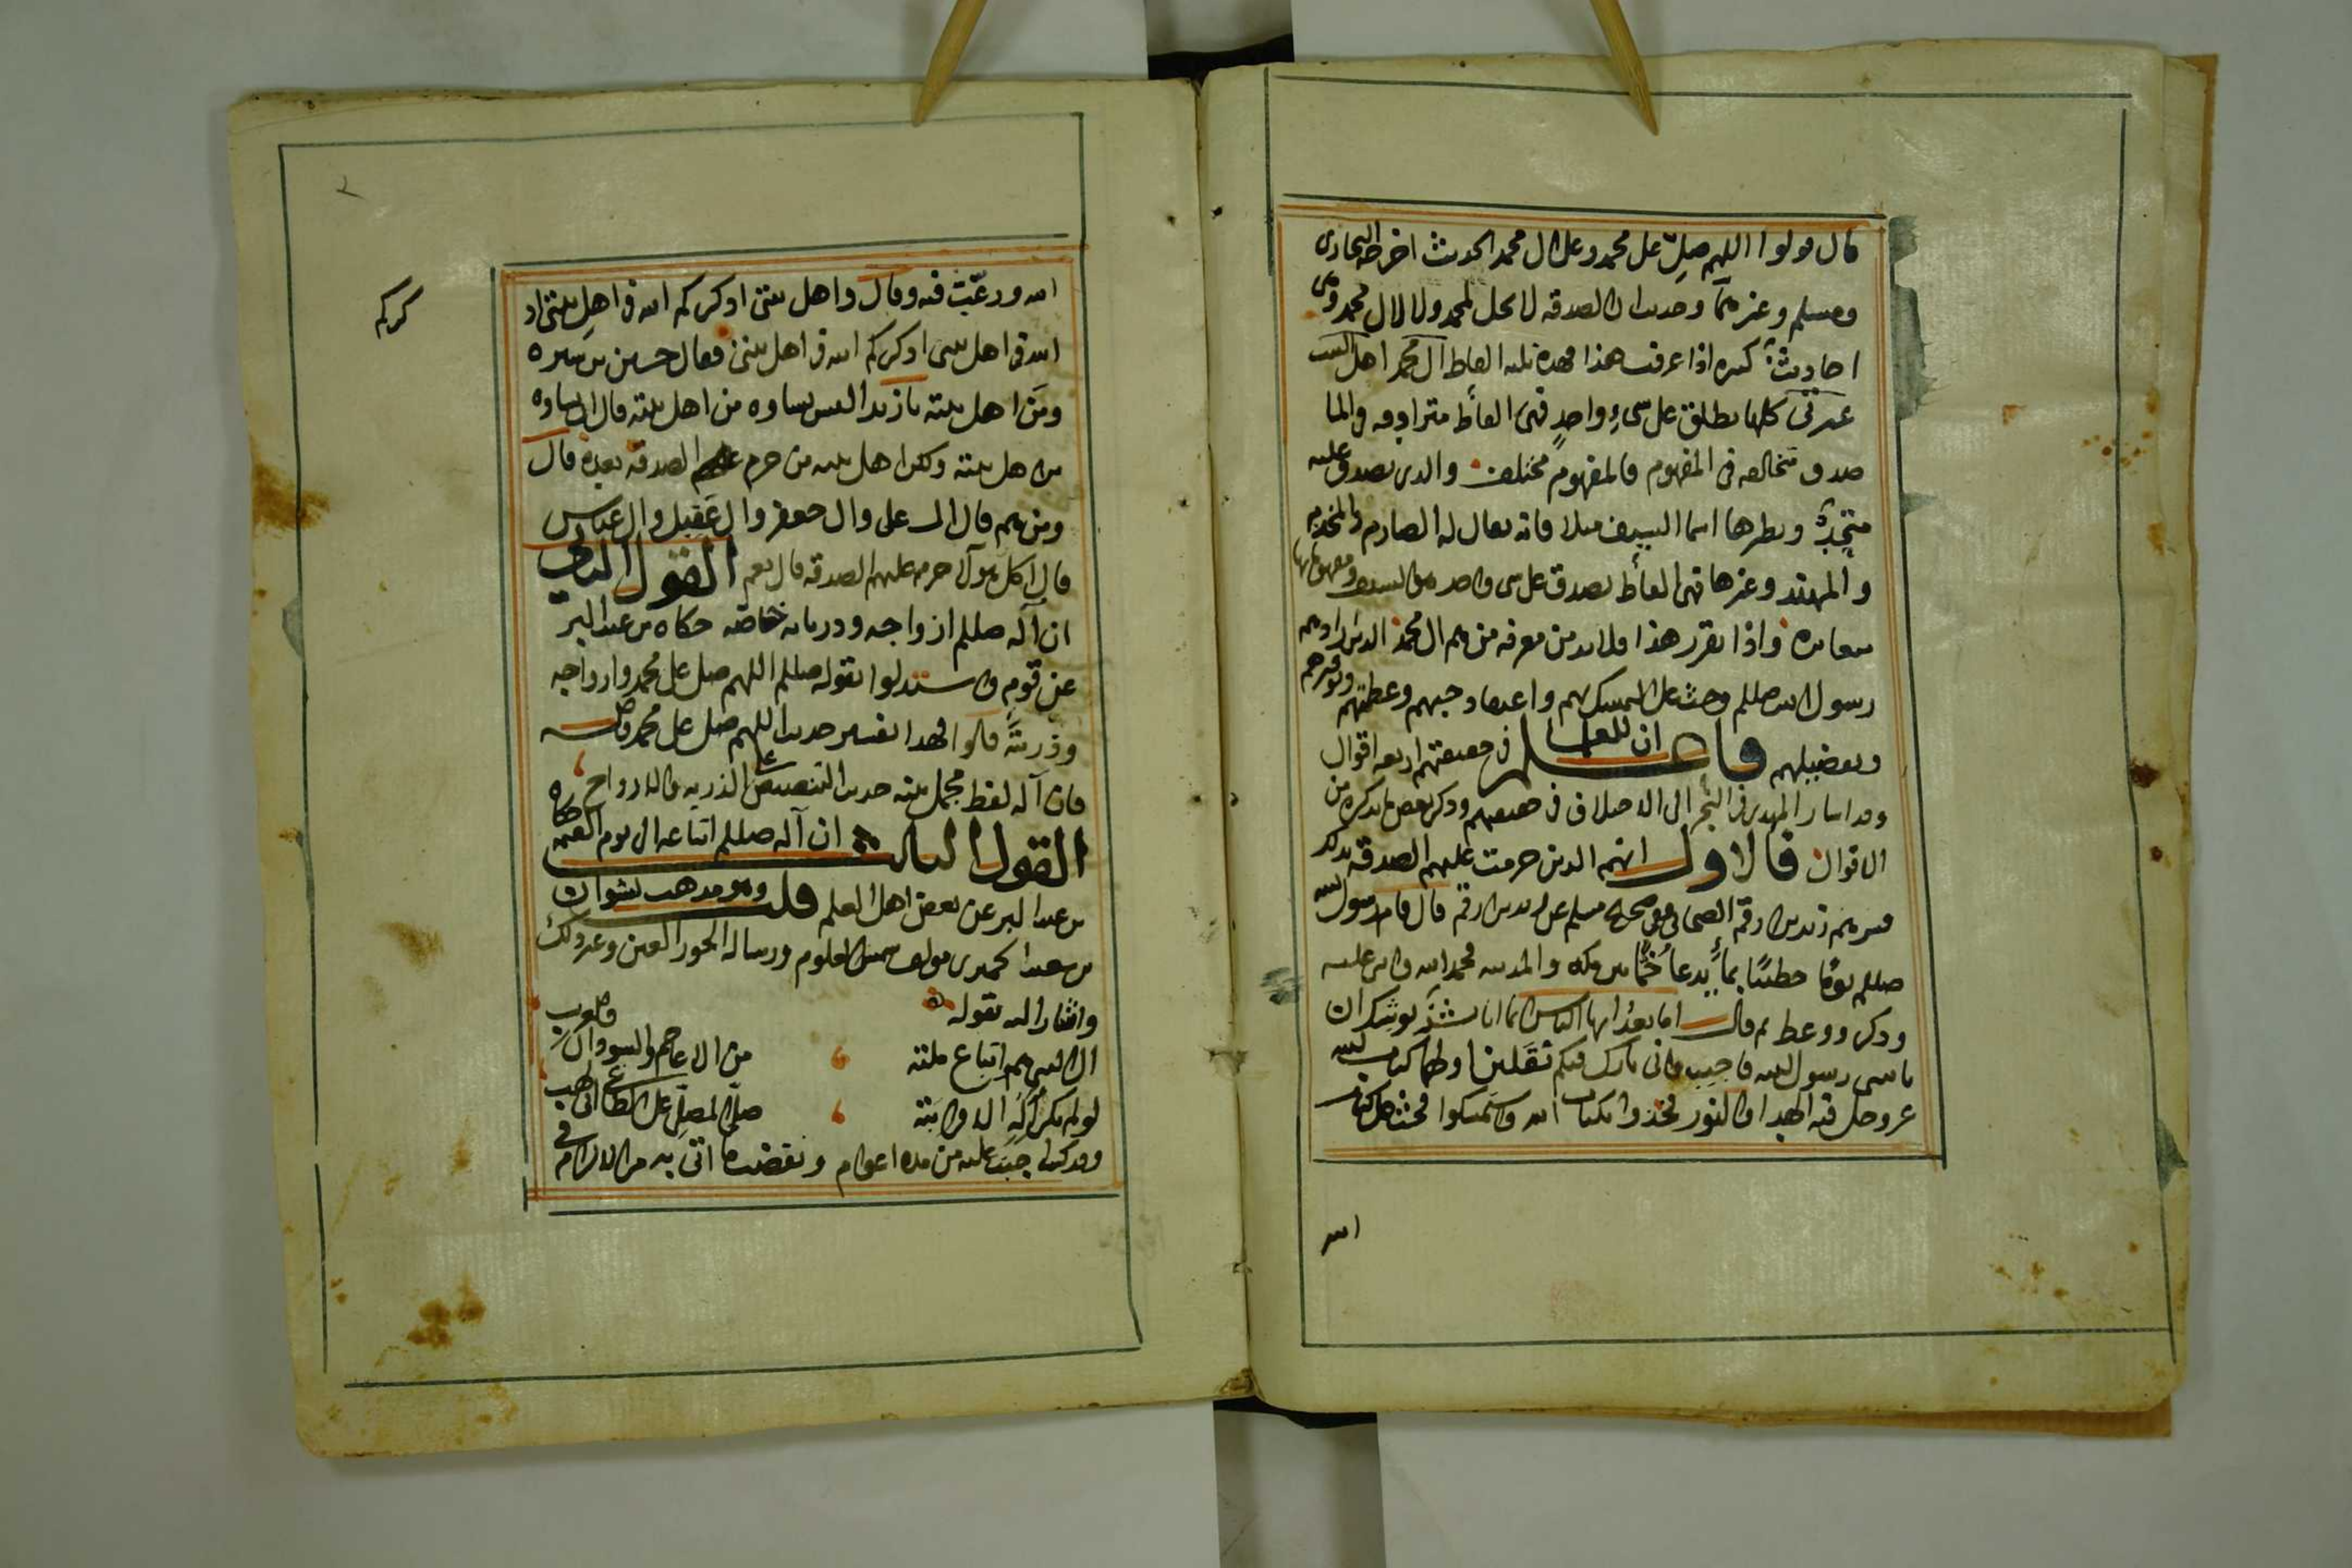 قال قولوا اللهم صلِّ على محمد وعلى ال محمد الحديث اخرجه البخارى
ومسلم وغيرهما وحديث ان الصدقه لا تحل لمحمد ولا لال محمد وفى
احاديث كثيره اذا عرفت هذا فهذه ثلثه الفاظ ال محمد اهل البيت
عترتى كلها يطلق على شىءٍ واحدٍ فهى الفاظ مترادفه والما
صدق تخالفه فى المفهوم فالمفهوم مختلف والذى يصدق عليه
متحدٌ ونظيرها اسما السيف مثلا فانه يقال له الصارم والمخذم
والمهند وغيرها فهى الفاظ يصدق على شى واحد هو السيف ومفهوماتها
متغايره واذا تقرر هذا فلا بد من معرفه من هم ال محمد الذين ارادهم
رسول الله صللم وحث على التمسك بهم واعتقاد حبهم وعظمتهم وتوقيرهم
وتفضيلهم فاعلم ان للعلما فى حقيقتهم اربعه اقوال
وقد اشار المهدى فى البحر الى الاختلاف فى حقيقتهم وذكر بعض ما نذكره من
الاقوال فالاول انهم الذين حرمت عليهم الصدقه بذلك
فسرهم زيد بن ارقم الصحابى ففى صحيح مسلم عن زيد بن ارقم قال قام رسول الله
صللم يومًا خطيبًا بماءٍ يدعا خُمًّا بين مكه والمدينه فحمد الله واثنى عليه
وذكر ووعظ ثم قال اما بعدُ ايها الناس انما انا بشرٌ يوشك ان
ياتى رسول الله فاجيب وانى تارك فيكم ثَقَلين اولهما كتاب الله
عز وجل فيه الهدا والنور فخذوا بكتاب الله واستمسكوا فحث على كتاب
الله
الله ورغّبَ فيه وقال واهل بيتى اذكركم الله فى اهل بيتى اذ
كركم
الله فى اهل بيتى اذكركم الله فى اهل بيتى فقال حسين بن سبره
ومَن اهل بيته يا زيد اليس نساوه من اهل بيته قال ان نساوه
من اهل بيته ولكن اهل بيته من حرم الصدقه بعده قال
ومن هم قال ال على وال جعفر وال عَقيل وال عباس
قال اكل هولا حرم عليهم الصدقه قال نعم القول الثانى
ان آله صللم ازواجه وذرياته خاصّه حكاه بن عبد البر
عن قومٍ واستدلوا بقوله صللم اللهم صل على محمد وازواجه
وذريته قالوا فهذا تفسير حديث اللهم صل على محمد واله
فان آله لفظ مجمل بينه حديث التنصيص على الذريه والازواج
القول الثالث ان آله صللم اتباعه الى يوم القيمه حكاه
بن عبد البر عن بعض اهل العلم قلت وهو مذهب نشوان
بن سعيد الحميرى مولف شمس العلوم ورساله الحور العين وغير ذلك
واشار اليه بقوله
ال النبى هم اتباع ملته من الاعاجم والسودان والعرب
لو لم يكن آله الا قرابته صلّى المصلِّى على الطاغى ابى لهب
وقد كنت اجبت عليه من مده اعوام ونقضت ما اتى به من الالزام فى